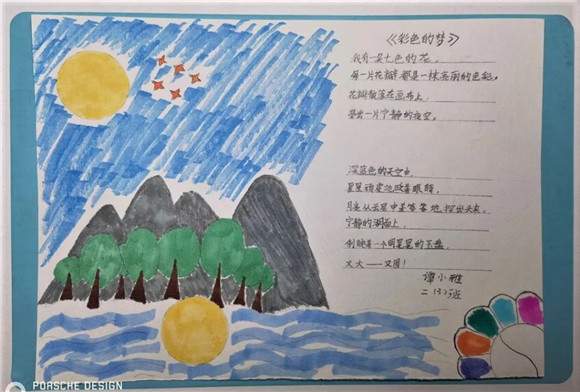 《彩色的梦》
我有一朵七色的花。
每一片花瓣都是一抹亮丽的色彩。
花瓣散落在画布上，
垒出一片宁静的夜空。
深蓝色的天空中
星星顽皮地眨着眼睛，
月亮从云层中羞答答地探出头来，
宁静的湖面上，
倒映着一个明晃晃的玉盘，
又大——又圆！
谭小雅
二（3）班
PORSCHE DESIGN